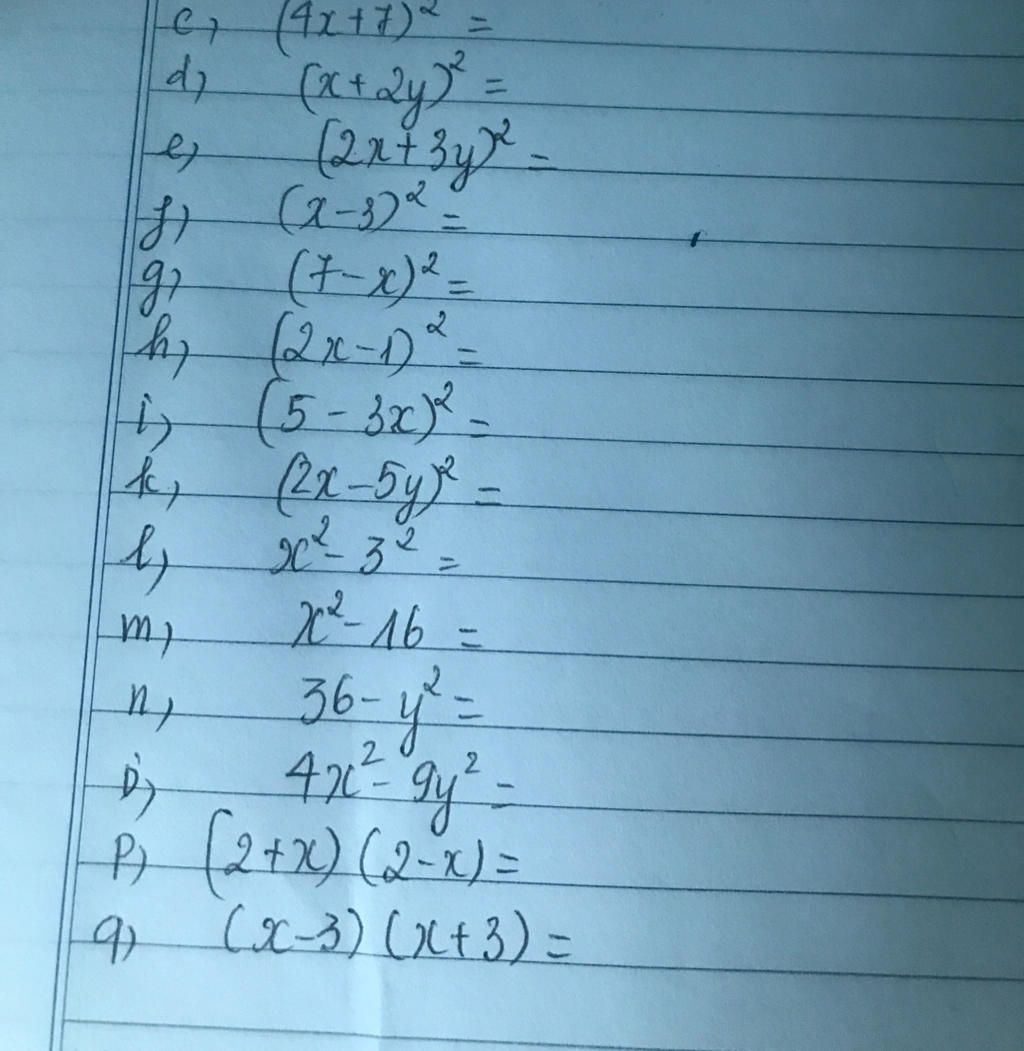 c, (4x+7)² =
d, (x+2y)² =
e, (2x+3y)² =
f, (x-3)² =
g, (7-x)² =
h, (2x-1)² =
i, (5-3x)² =
k, (2x-5y)² =
l, x²-3² =
m, x²-16 =
n, 36-y² =
o, 4x²-9y² =
p) (2+x)(2-x) =
q) (x-3)(x+3) =